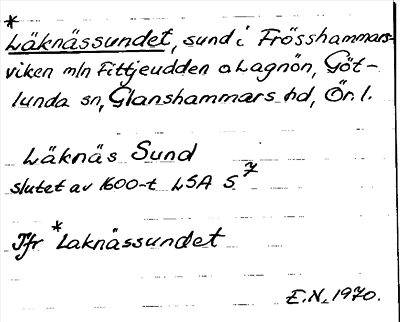 *
Läknässundet, sund i Frösshammars-
viken mln Fittjeudden o Lagnön, Göt-
lunda sn, Glanshammars hd, Ör. l.
Läknäs Sund
slutet av 1600-t LSA S 7
Jfr *Laknässundet
E.N. 1970.